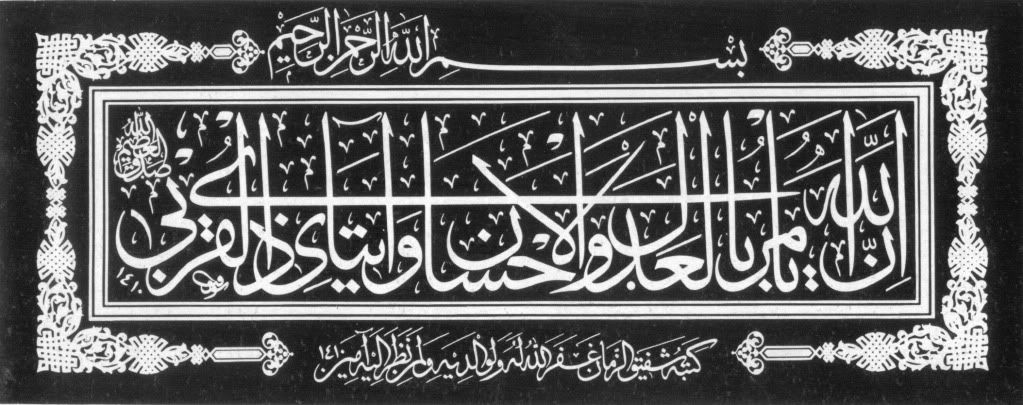 بسم الله الرحمن الرحيم
ان الله يأمر بالعدل والاحسان وايتاى ذى القربى
صدق الله العظيم
١٤١٠
كتبه شفيق الزمان غفر الله له ولوالديه ولمن نظر اليه آمين ١٤١٠